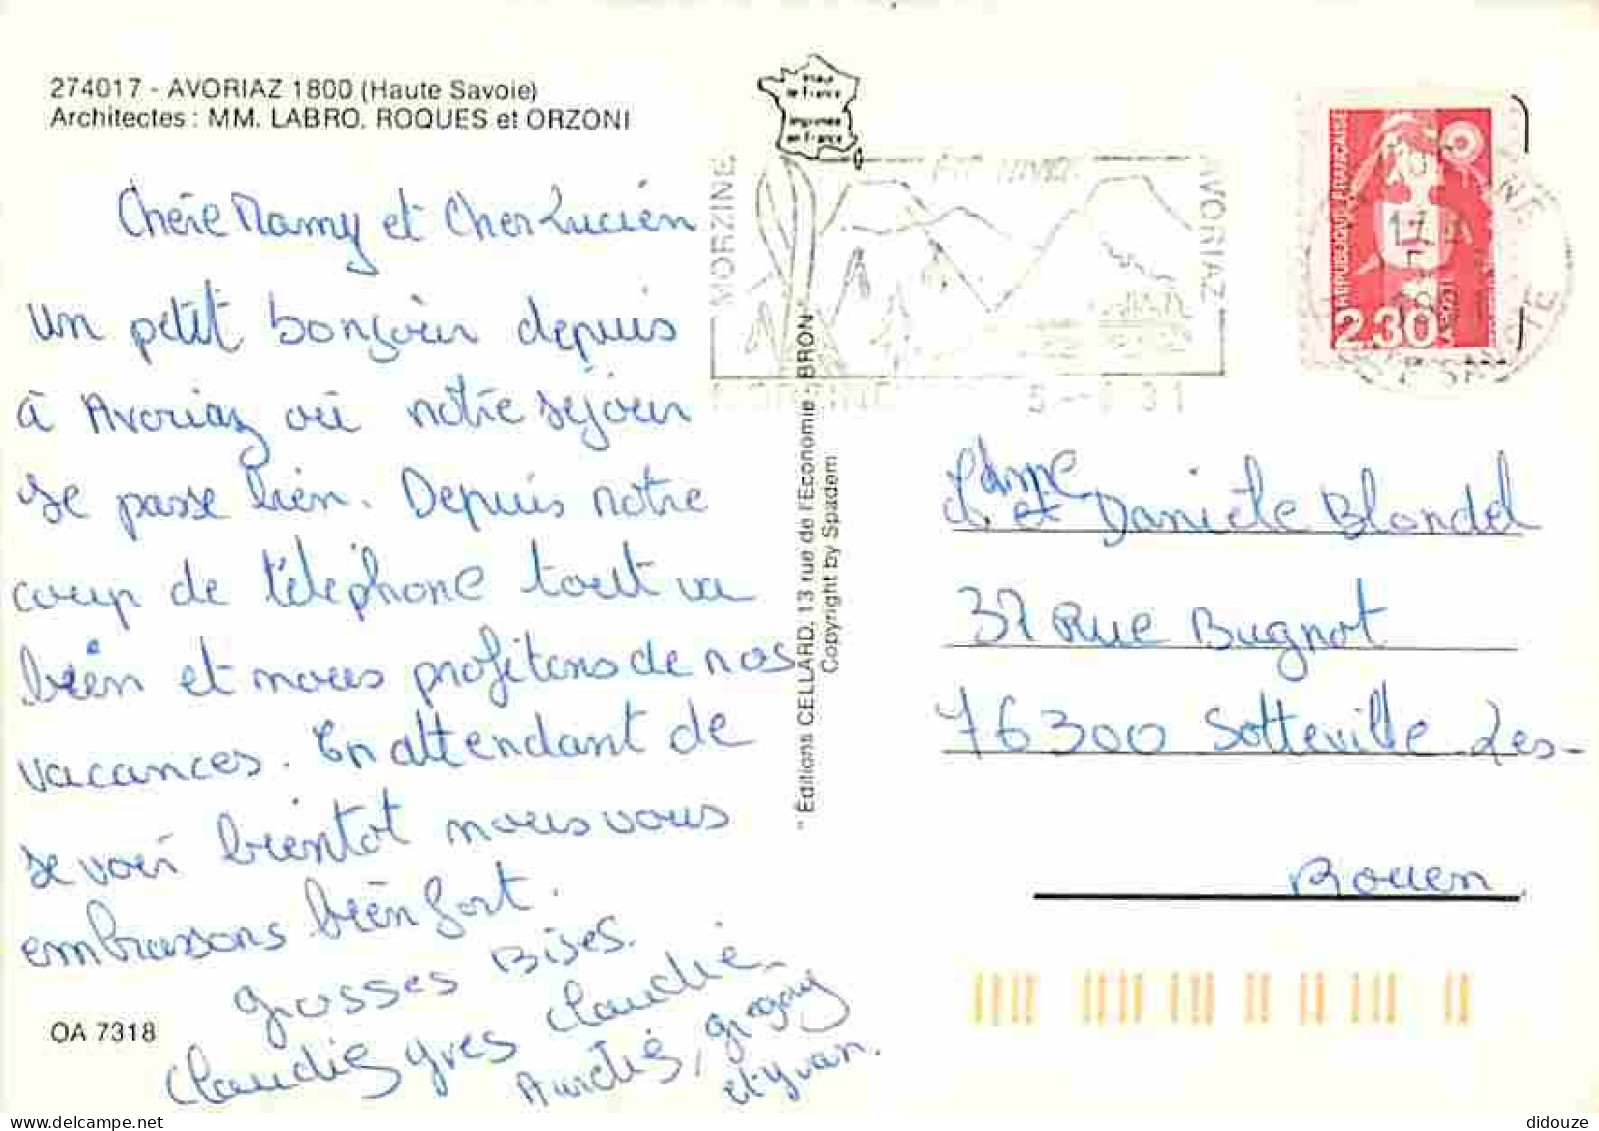 274017 - AVORIAZ 1800 (Haute Savoie)
Architectes : MM. LABRO, ROQUES et ORZONI
Fabriqué
Imprimée
en France
MORZINE
AVORIAZ
REPUBLIQUE FRANCAISE
2.30
LA POSTE
Chère Mamy et Cher Lucien
un petit bonjour depuis
à Avoriaz où notre séjour
se passe bien. Depuis notre
coup de téléphone tout va
bien et nous profitons de nos
vacances. En attendant de
se voir bientot nous vous
embrassons bien fort.
grosses Bises.
Claudie Yves Claudie
Aurélie, grégory
et yvan.
OA 7318
"Editions CELLARD, 13 rue de l'Economie - BRON"
Copyright by Spadem
L. et Danièle Blondel
37 Rue Bugnot
76300 Sotteville-Les-
Rouen
delcampe.net
didouze